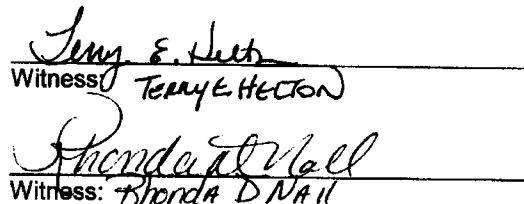 Terry E. Helton
Witness: TERRY E. HELTON
Rhonda D Nall
Witness: Rhonda D NAll